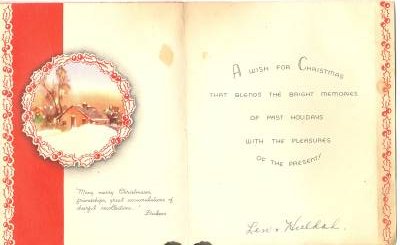 "Many merry Christmases,
friendships, great accumulations of
cheerful recollections."
Dickens
A WISH FOR CHRISTMAS
THAT BLENDS THE BRIGHT MEMORIES
OF PAST HOLIDAYS
WITH THE PLEASURES
OF THE PRESENT!
Len & Huldah.